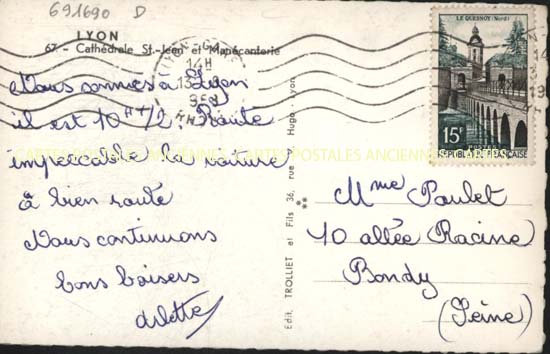 691690 D
LYON
67 - Cathédrale St-Jean et Manécanterie
14H
13
LE QUESNOY (Nord)
15F
RÉPUBLIQUE FRANÇAISE
Nous sommes à Lyon
il est 10H 1/2. Route
impeccable la voiture
à bien roulé
Nous continuons
bons baisers
Arlette
Edit. TROLLIET et Fils 36, rue V. Hugo - Lyon
Mme Poulet
10 allée Racine
Bondy
(Seine)
CARTES POSTALES ANCIENNES CARTES POSTALES ANCIENNES CARTES